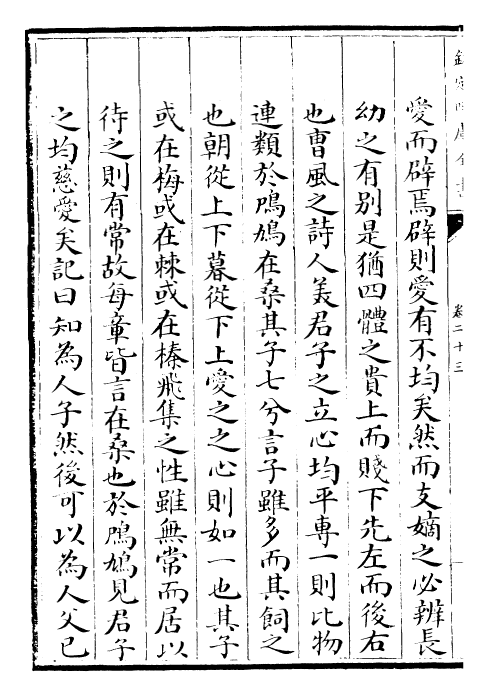 欽定四庫全書
卷二十三
愛而辟焉辟則愛有不均矣然而支嫡之必辨長
幼之有别是猶四體之貴上而賤下先左而後右
也曹風之詩人美君子之立心均平專一則比物
連類於鳲鳩在桑其子七兮言子雖多而其飼之
也朝從上下暮從下上愛之之心則如一也其子
或在梅或在棘或在榛飛集之性雖無常而居以
待之則有常故每章皆言在桑也於鳲鳩見君子
之均慈愛矣記曰知為人子然後可以為人父已